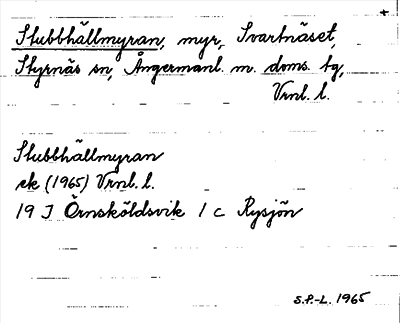 Stubbhällmyran, myr, Svartnäset,
Styrnäs sn, Ångermanl. m. doms. tg,
Vrnl. l.
Stubbhällmyran
ek (1965) Vrnl. l.
19 J Örnsköldsvik 1 c Rysjön
S.P.-L. 1965